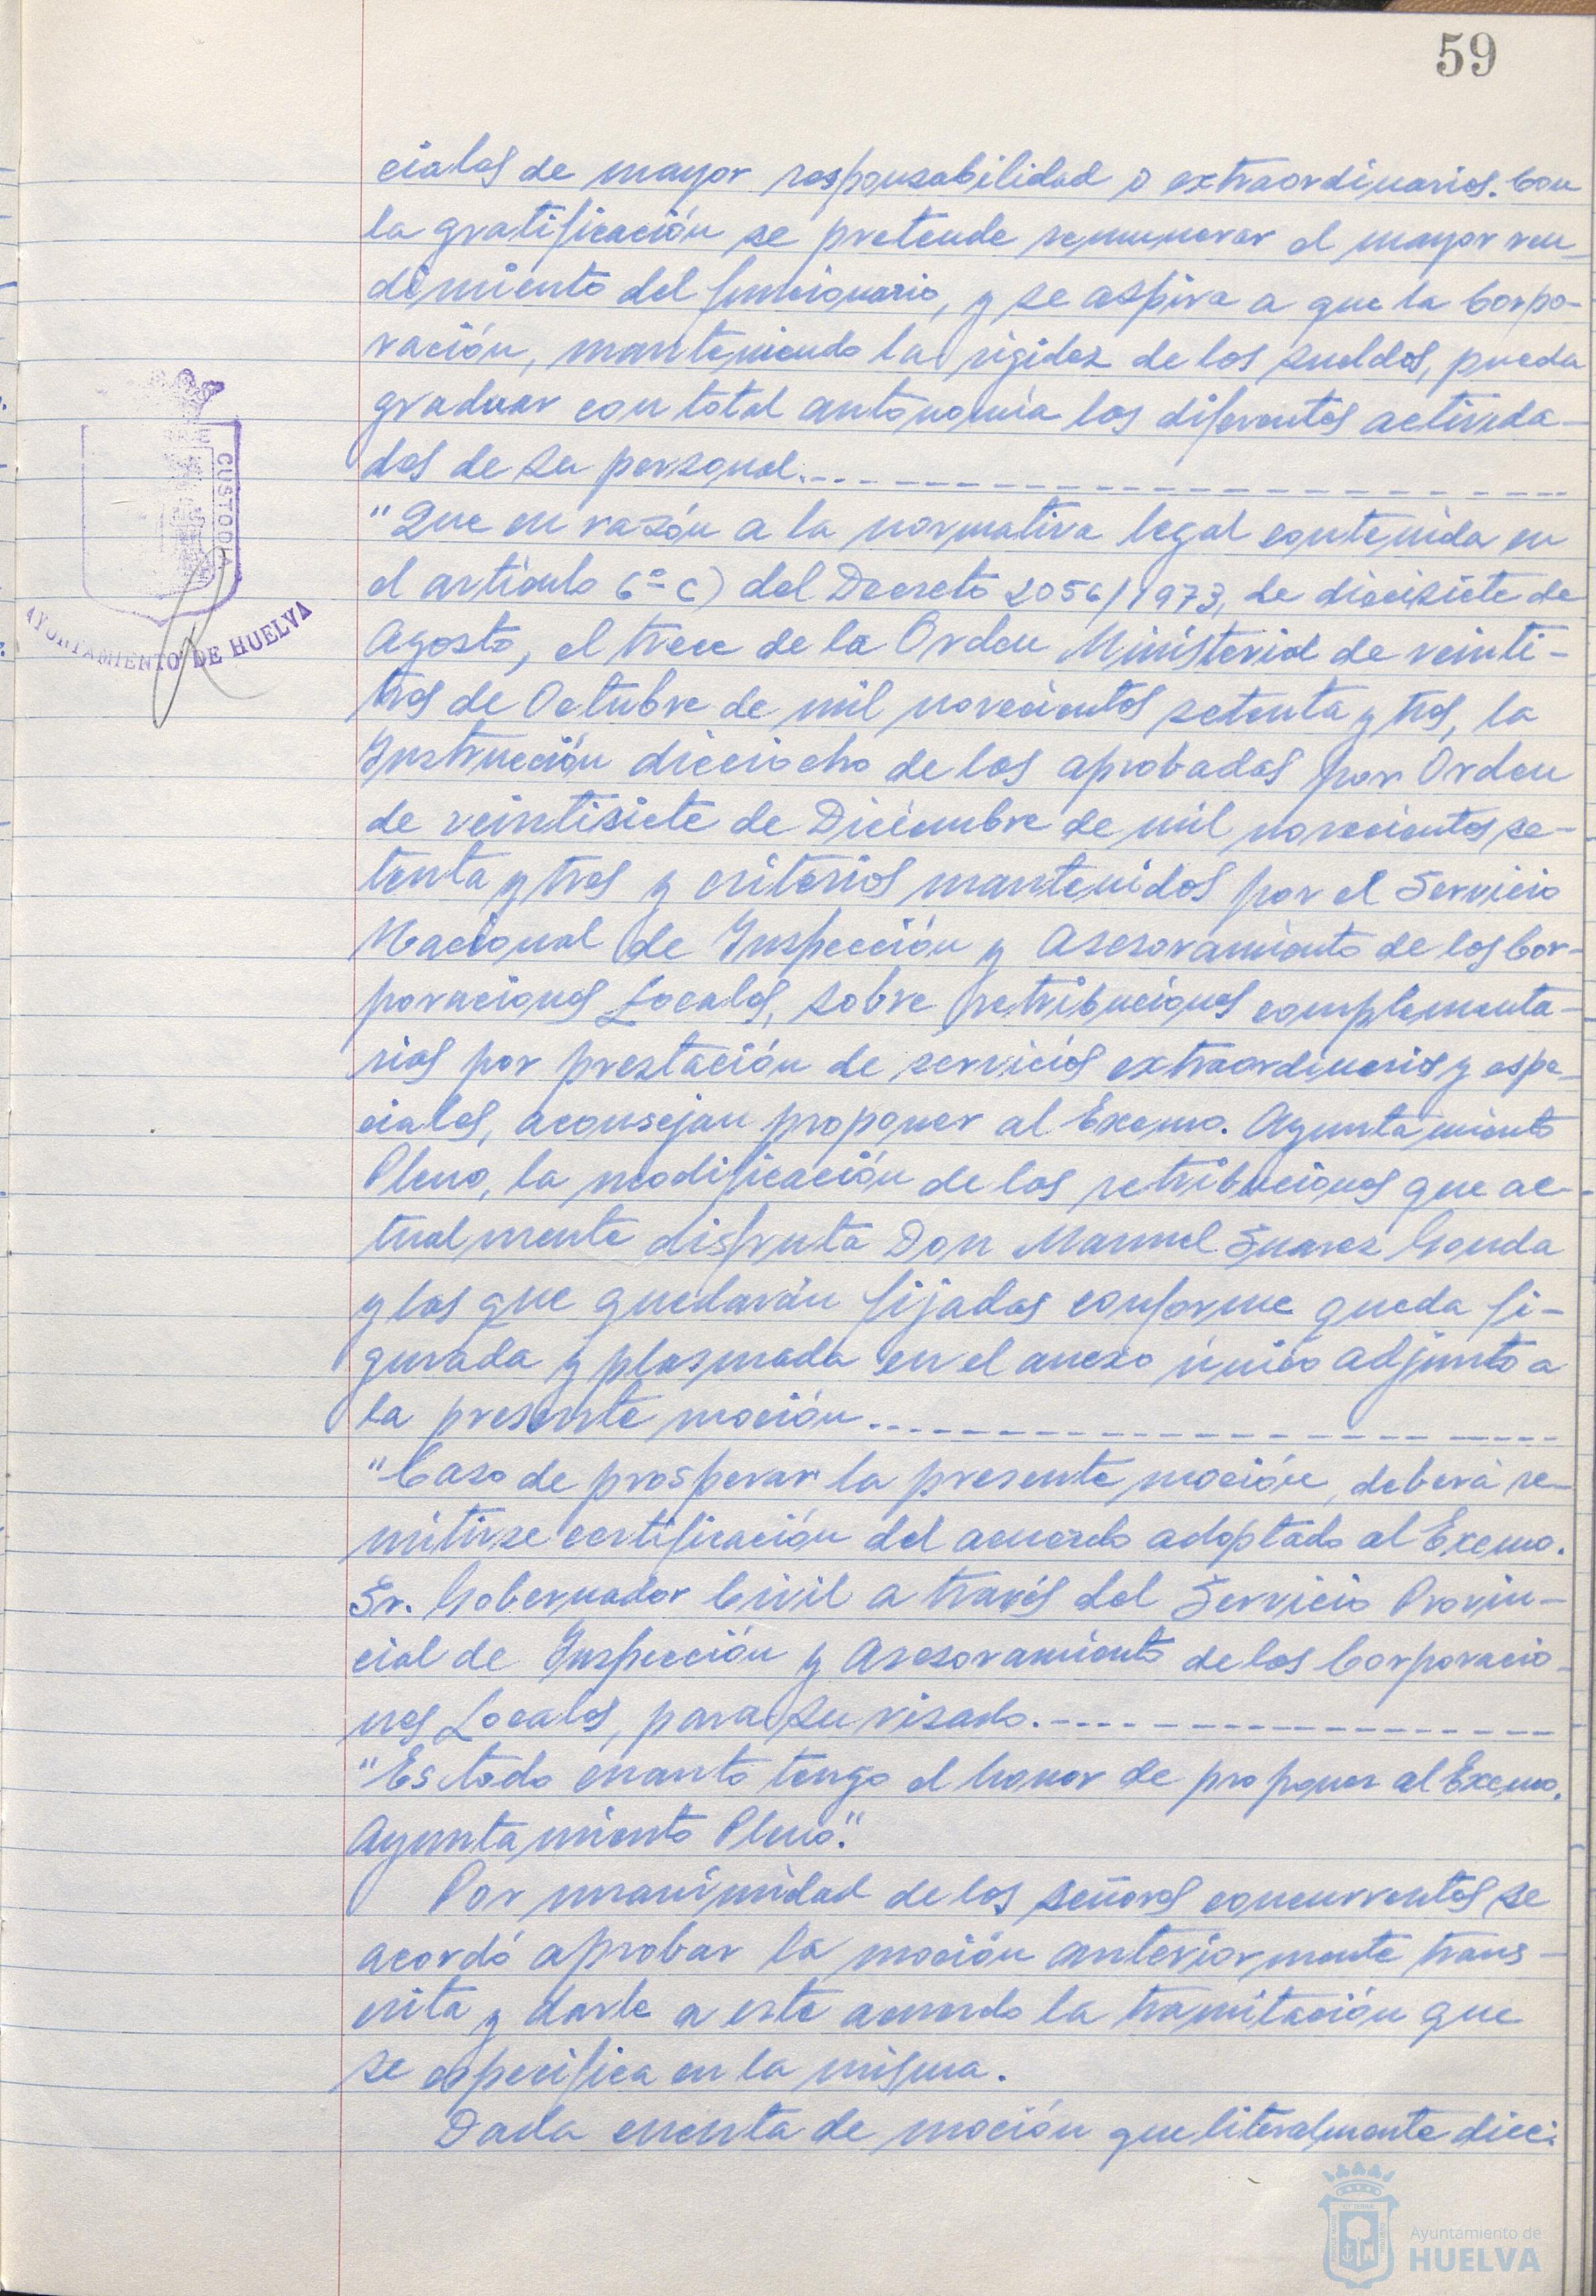 59
ciales de mayor responsabilidad o extraordinarios. Con
la gratificación se pretende remunerar el mayor ren-
dimiento del funcionario, y se aspira a que la Corpo-
ración, manteniendo la rigidez de los sueldos, pueda
graduar con total autonomía las diferentes activida-
des de su personal.
"Que en razón a la normativa legal contenida en
el artículo 6º c) del Decreto 2056/1973, de diecisiete de
Agosto, el trece de la Orden Ministerial de veinti-
tres de Octubre de mil novecientos setenta y tres, la
Instrucción dieciocho de las aprobadas por Orden
de veintisiete de Diciembre de mil novecientos se-
tenta y tres y criterios mantenidos por el Servicio
Nacional de Inspección y Asesoramiento de las Cor-
poraciones Locales, sobre retribuciones complementa-
rias por prestación de servicios extraordinarios y espe-
ciales, aconsejan proponer al Excmo. Ayuntamiento
Pleno, la modificación de las retribuciones que ac-
tualmente disfruta Don Manuel Suarez
y las que quedarán fijadas conforme queda fi-
gurada y plasmada en el anexo único adjunto a
la presente moción.
"Caso de prosperar la presente moción, deberá re-
mitirse certificación del acuerdo adoptado al Excmo.
Sr. Gobernador Civil a través del Servicio Provin-
cial de Inspección y Asesoramiento de las Corporacio-
nes Locales, para su visado.
"Es todo cuanto tengo el honor de proponer al Excmo.
Ayuntamiento Pleno".
Por unanimidad de los señores concurrentes se
acordó aprobar la moción anteriormente trans-
crita y darle a este acuerdo la tramitación que
se especifica en la misma.
Dada cuenta de moción que literalmente dice:
CUSTODIA
AYUNTAMIENTO DE HUELVA
Ayuntamiento de
HUELVA